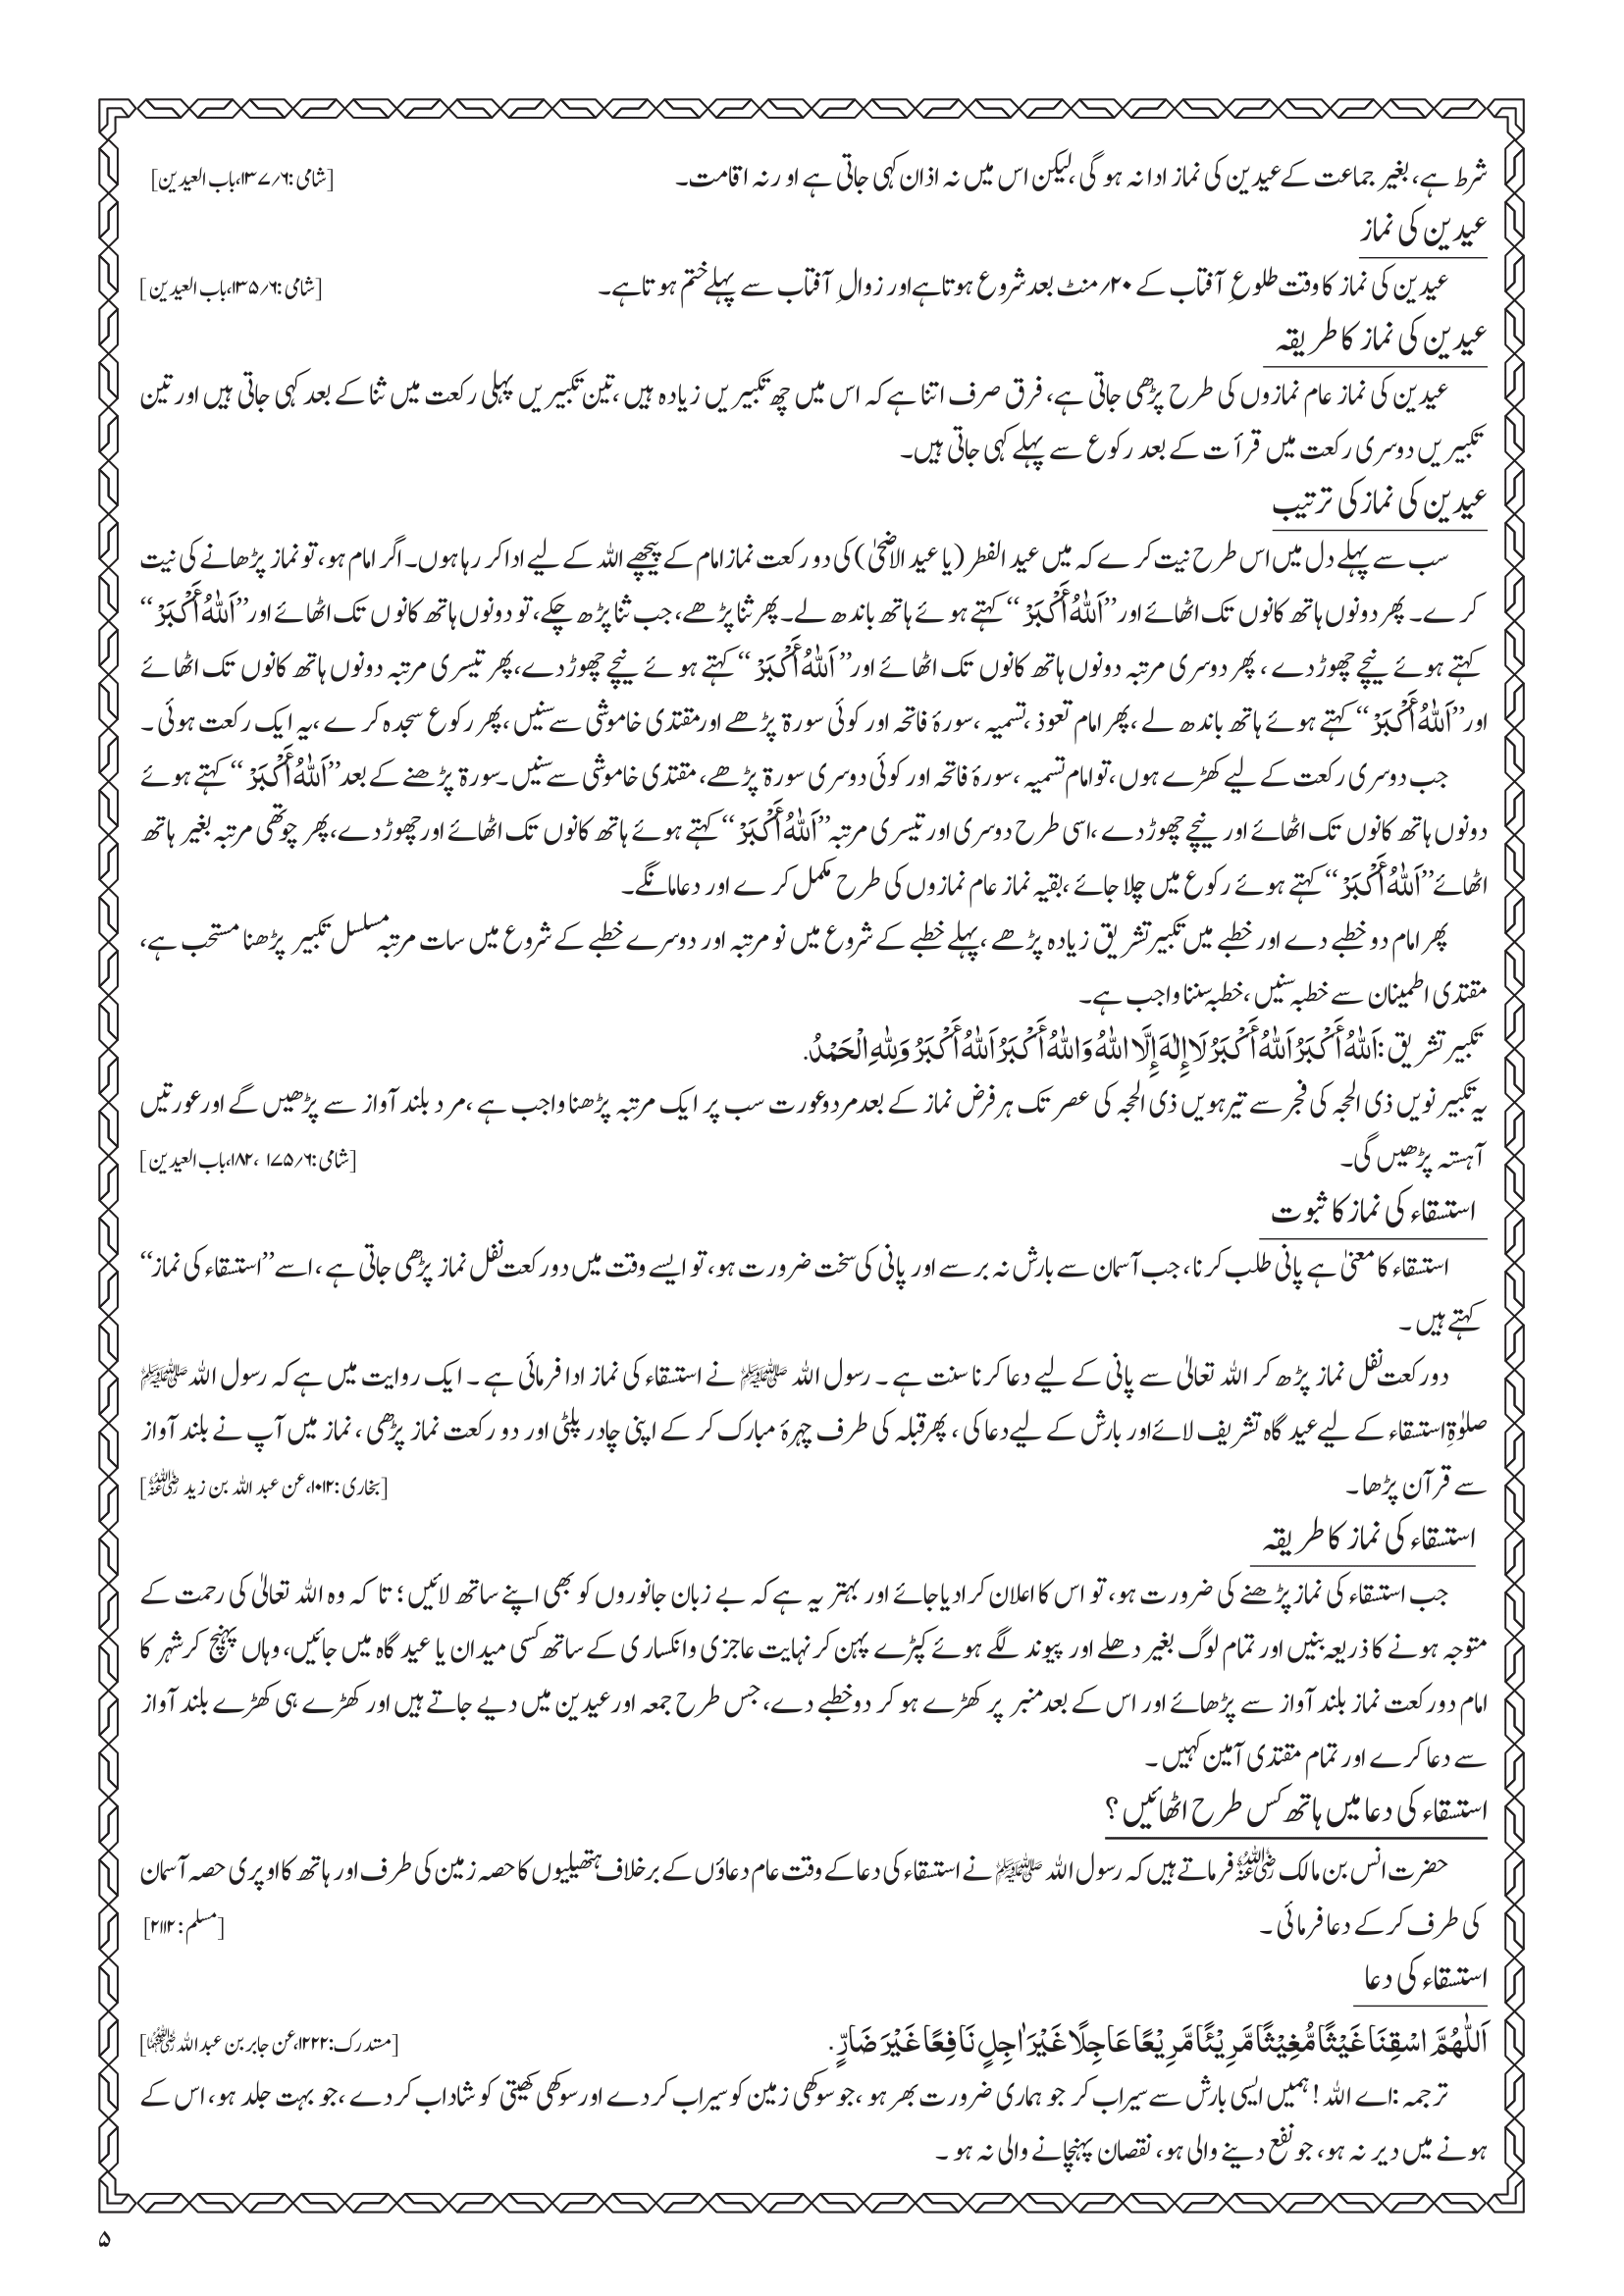 شرط ہے، بغیر جماعت کے عیدین کی نماز ادا نہ ہو گی، لیکن اس میں نہ اذان کہی جاتی ہے اور نہ اقامت۔ [شامی:۶؍۱۳۷، باب العیدین]
عیدین کی نماز
عیدین کی نماز کا وقت طلوعِ آفتاب کے ۲۰؍منٹ بعد شروع ہوتا ہے اور زوالِ آفتاب سے پہلے ختم ہوتا ہے۔ [شامی:۶؍۱۳۵، باب العیدین]
عیدین کی نماز کا طریقہ
عیدین کی نماز عام نمازوں کی طرح پڑھی جاتی ہے، فرق صرف اتنا ہے کہ اس میں چھ تکبیریں زیادہ ہیں، تین تکبیریں پہلی رکعت میں ثنا کے بعد کہی جاتی ہیں اور تین
تکبیریں دوسری رکعت میں قرأت کے بعد رکوع سے پہلے کہی جاتی ہیں۔
عیدین کی نماز کی ترتیب
سب سے پہلے دل میں اس طرح نیت کرے کہ میں عید الفطر (یا عید الاضحیٰ) کی دو رکعت نماز امام کے پیچھے اللہ کے لیے ادا کر رہا ہوں۔ اگر امام ہو، تو نماز پڑھانے کی نیت
کرے۔ پھر دونوں ہاتھ کانوں تک اٹھائے اور ”اَللّٰهُ أَكْبَرْ“ کہتے ہوئے ہاتھ باندھ لے۔ پھر ثنا پڑھے، جب ثنا پڑھ چکے، تو دونوں ہاتھ کانوں تک اٹھائے اور ”اَللّٰهُ أَكْبَرْ“
کہتے ہوئے نیچے چھوڑ دے، پھر دوسری مرتبہ دونوں ہاتھ کانوں تک اٹھائے اور ”اَللّٰهُ أَكْبَرْ“ کہتے ہوئے نیچے چھوڑ دے، پھر تیسری مرتبہ دونوں ہاتھ کانوں تک اٹھائے
اور ”اَللّٰهُ أَكْبَرْ“ کہتے ہوئے ہاتھ باندھ لے، پھر امام تعوذ، تسمیہ، سورۂ فاتحہ اور کوئی سورۃ پڑھے اور مقتدی خاموشی سے سنیں، پھر رکوع سجدہ کرے، یہ ایک رکعت ہوئی۔
جب دوسری رکعت کے لیے کھڑے ہوں، تو امام تسمیہ، سورۂ فاتحہ اور کوئی دوسری سورۃ پڑھے، مقتدی خاموشی سے سنیں۔ سورۃ پڑھنے کے بعد ”اَللّٰهُ أَكْبَرْ“ کہتے ہوئے
دونوں ہاتھ کانوں تک اٹھائے اور نیچے چھوڑ دے، اسی طرح دوسری اور تیسری مرتبہ ”اَللّٰهُ أَكْبَرْ“ کہتے ہوئے ہاتھ کانوں تک اٹھائے اور چھوڑ دے، پھر چوتھی مرتبہ بغیر ہاتھ
اٹھائے ”اَللّٰهُ أَكْبَرْ“ کہتے ہوئے رکوع میں چلا جائے، بقیہ نماز عام نمازوں کی طرح مکمل کرے اور دعا مانگے۔
پھر امام دو خطبے دے اور خطبے میں تکبیر تشریق زیادہ پڑھے، پہلے خطبے کے شروع میں نو مرتبہ اور دوسرے خطبے کے شروع میں سات مرتبہ مسلسل تکبیر پڑھنا مستحب ہے،
مقتدی اطمینان سے خطبہ سنیں، خطبہ سننا واجب ہے۔
تکبیر تشریق: اَللّٰهُ أَكْبَرُ اَللّٰهُ أَكْبَرُ لَا إِلٰهَ إِلَّا اللّٰهُ وَاللّٰهُ أَكْبَرُ اَللّٰهُ أَكْبَرُ وَلِلّٰهِ الْحَمْدُ.
یہ تکبیر نویں ذی الحجہ کی فجر سے تیرہویں ذی الحجہ کی عصر تک ہر فرض نماز کے بعد مرد و عورت سب پر ایک مرتبہ پڑھنا واجب ہے، مرد بلند آواز سے پڑھیں گے اور عورتیں
آہستہ پڑھیں گی۔ [شامی:۶؍۱۷۵، ۱۸۲، باب العیدین]
استسقاء کی نماز کا ثبوت
استسقاء کا معنیٰ ہے پانی طلب کرنا، جب آسمان سے بارش نہ برسے اور پانی کی سخت ضرورت ہو، تو ایسے وقت میں دو رکعت نفل نماز پڑھی جاتی ہے، اسے ”استسقاء کی نماز“
کہتے ہیں۔
دو رکعت نفل نماز پڑھ کر اللہ تعالیٰ سے پانی کے لیے دعا کرنا سنت ہے۔ رسول اللہ ﷺ نے استسقاء کی نماز ادا فرمائی ہے۔ ایک روایت میں ہے کہ رسول اللہ ﷺ
صلوٰۃِ استسقاء کے لیے عید گاہ تشریف لائے اور بارش کے لیے دعا کی، پھر قبلہ کی طرف چہرۂ مبارک کر کے اپنی چادر پلٹی اور دو رکعت نماز پڑھی، نماز میں آپ نے بلند آواز
سے قرآن پڑھا۔ [بخاری:۱۰۱۲، عن عبد اللہ بن زید رضی اللہ عنہ]
استسقاء کی نماز کا طریقہ
جب استسقاء کی نماز پڑھنے کی ضرورت ہو، تو اس کا اعلان کرا دیا جائے اور بہتر یہ ہے کہ بے زبان جانوروں کو بھی اپنے ساتھ لائیں؛ تا کہ وہ اللہ تعالیٰ کی رحمت کے
متوجہ ہونے کا ذریعہ بنیں اور تمام لوگ بغیر دھلے اور پیوند لگے ہوئے کپڑے پہن کر نہایت عاجزی و انکساری کے ساتھ کسی میدان یا عید گاہ میں جائیں، وہاں پہنچ کر شہر کا
امام دو رکعت نماز بلند آواز سے پڑھائے اور اس کے بعد منبر پر کھڑے ہو کر دو خطبے دے، جس طرح جمعہ اور عیدین میں دیے جاتے ہیں اور کھڑے ہی کھڑے بلند آواز
سے دعا کرے اور تمام مقتدی آمین کہیں۔
استسقاء کی دعا میں ہاتھ کس طرح اٹھائیں؟
حضرت انس بن مالک رضی اللہ عنہ فرماتے ہیں کہ رسول اللہ ﷺ نے استسقاء کی دعا کے وقت عام دعاؤں کے برخلاف ہتھیلیوں کا حصہ زمین کی طرف اور ہاتھ کا اوپری حصہ آسمان
کی طرف کر کے دعا فرمائی۔ [مسلم:۲۱۱۲]
استسقاء کی دعا
اَللّٰهُمَّ اسْقِنَا غَيْثًا مُّغِيْثًا مَّرِيْئًا مَّرِيْعًا عَاجِلًا غَيْرَ اٰجِلٍ نَافِعًا غَيْرَ ضَارٍّ. [مستدرک:۱۲۲۲، عن جابر بن عبد اللہ رضی اللہ عنہما]
ترجمہ: اے اللہ! ہمیں ایسی بارش سے سیراب کر جو ہماری ضرورت بھر ہو، جو سوکھی زمین کو سیراب کر دے اور سوکھی کھیتی کو شاداب کر دے، جو بہت جلد ہو، اس کے
ہونے میں دیر نہ ہو، جو نفع دینے والی ہو، نقصان پہنچانے والی نہ ہو۔
۵